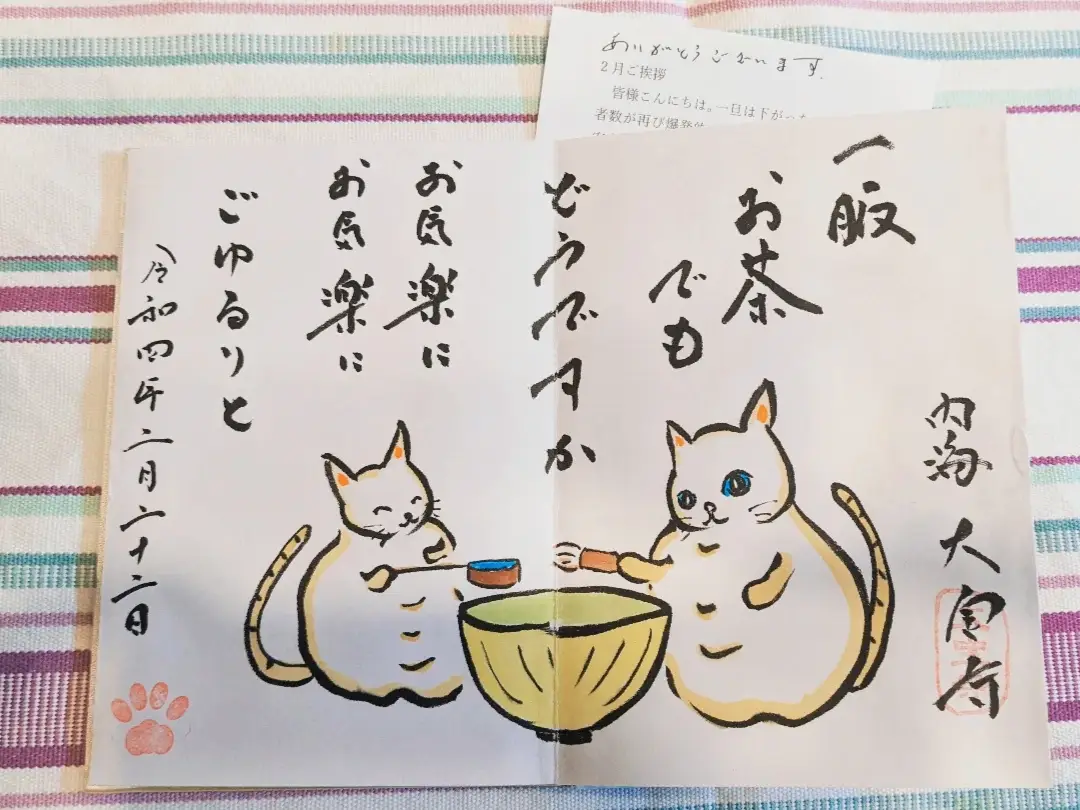 ありがとうございます.
2月ご挨拶
皆様こんにちは。一旦は下がった
者数が再び爆発
内海 大宝寺
一服
お茶
でも
どうですか
お気楽に
お気楽に
ごゆるりと
令和四年二月二十二日